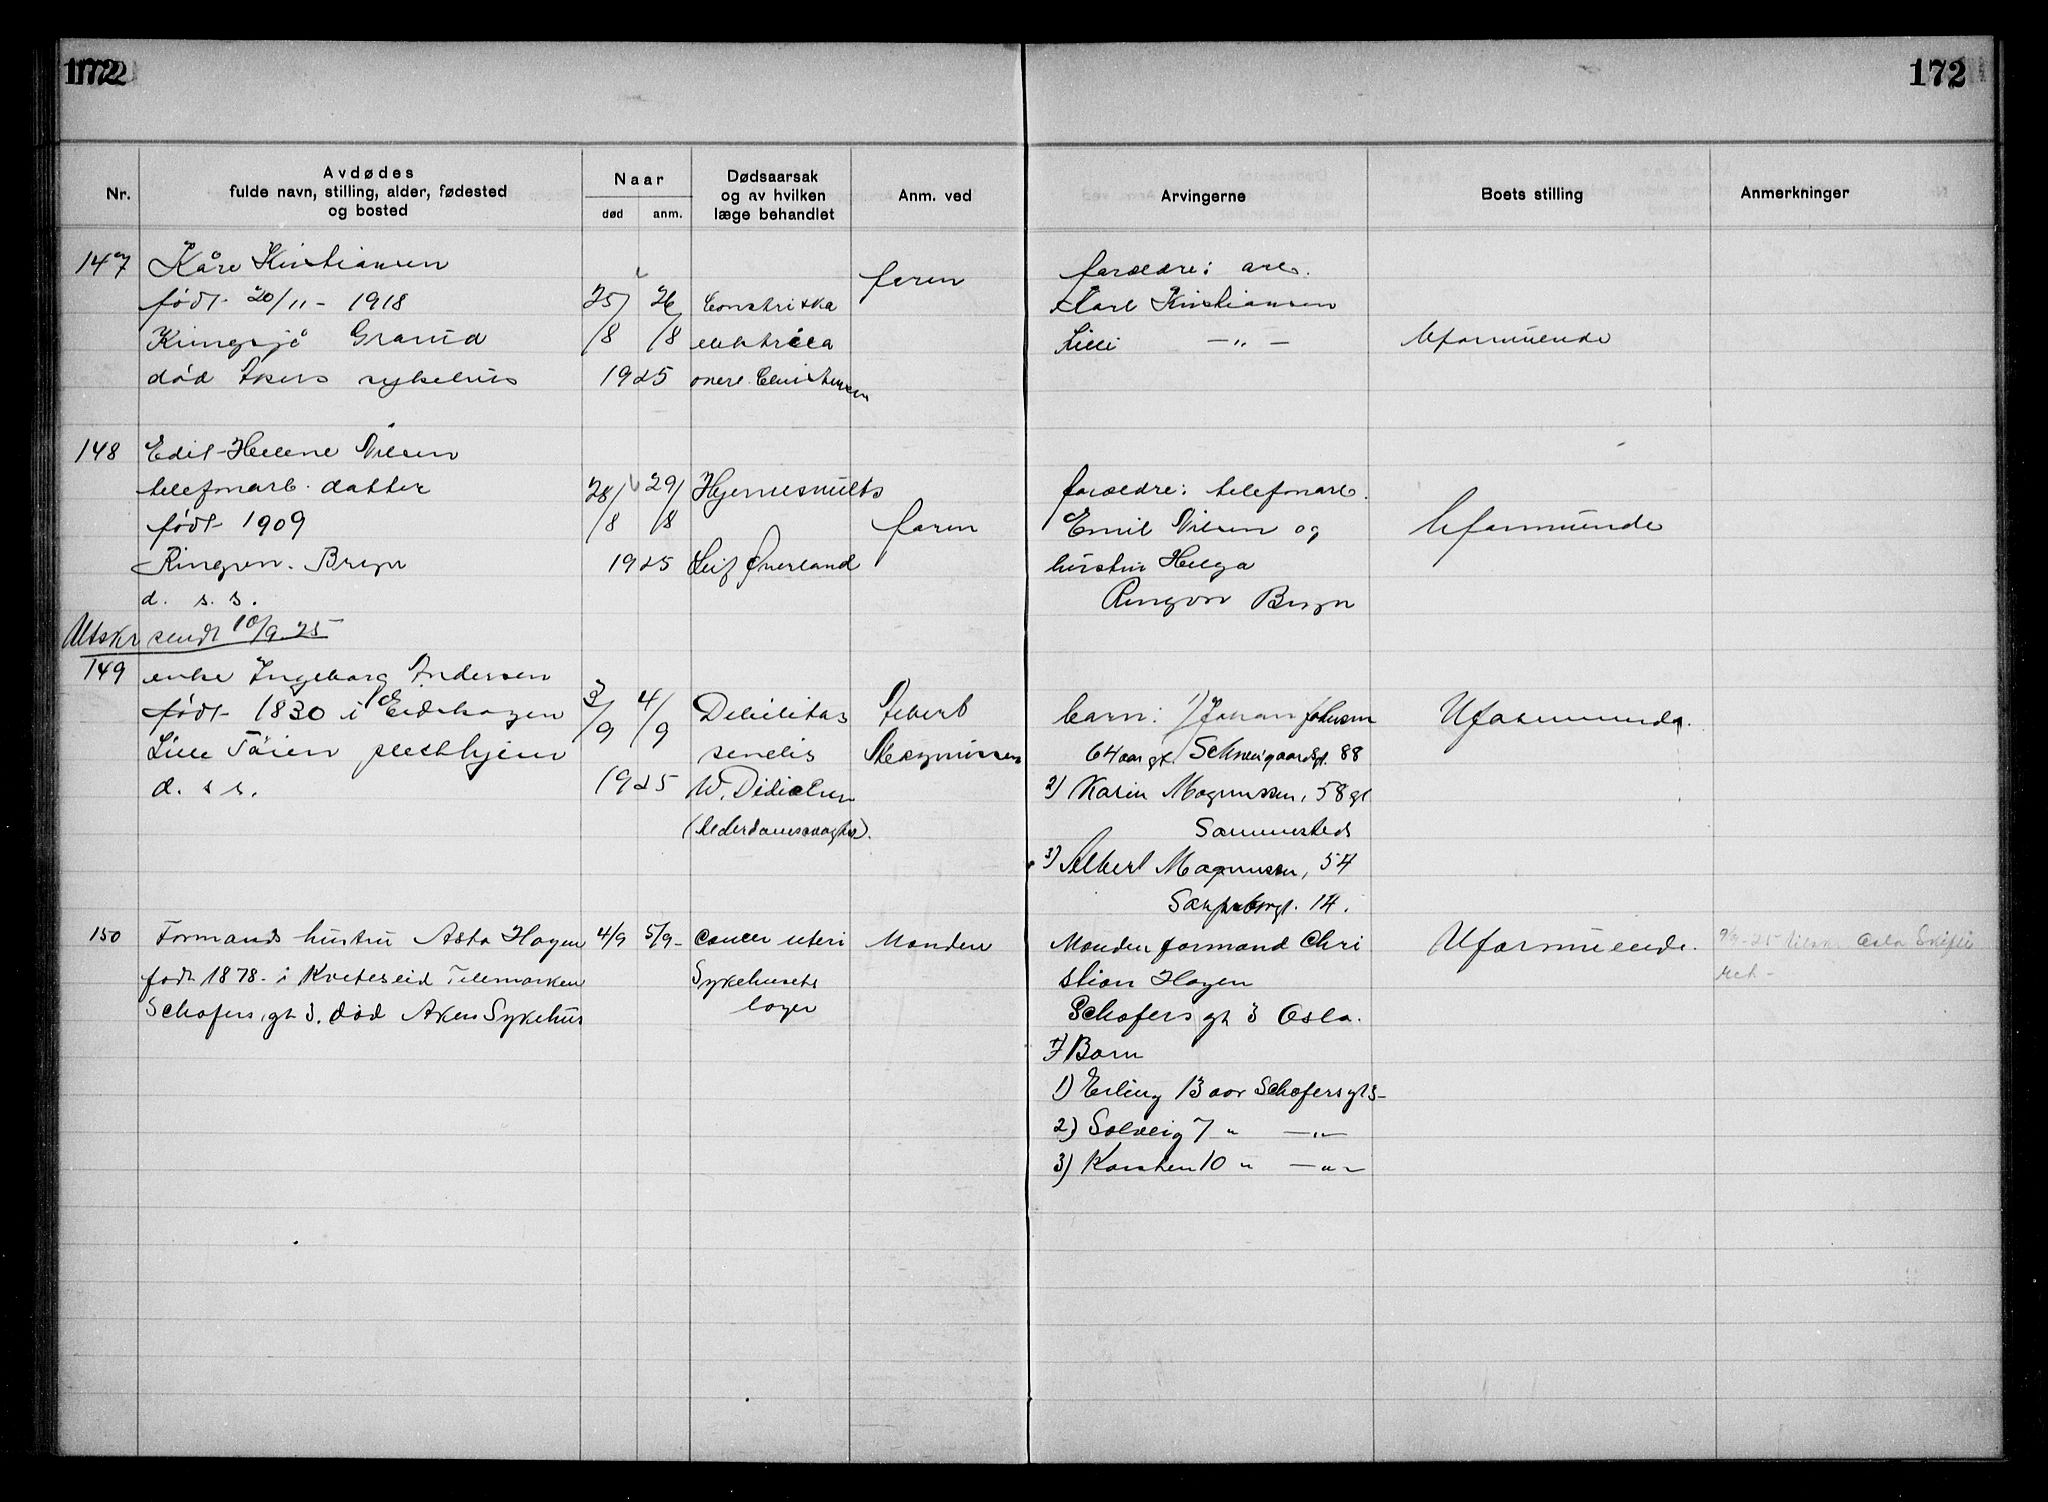 172
172
Nr.
Avdødes
fulde navn, stilling, alder, fødested
og bosted
Naar
død
anm.
Dødsaarsak
og av hvilken
læge behandlet
Anm. ved
Arvingerne
Boets stilling
Anmerkninger
147
Kåre Kristiansen
født 20/11 - 1918
Grorud
død Akers sykehus
25/8
26/8
1925
faren
forældre: arb.
Karl Kristiansen
Lilli - " -
Uformuende
148
Edit-Helene Nilsen
telefonarb. datter
født 1909
Ringvn. Bryn
d. s. s.
28/8
29/8
1925
Leif Øverland
faren
forældre: telefonarb.
Emil Nilsen og
hustru Helga
Ringvn Bryn
Uformuende
Utskr sendt 10/9 25
149
enke Ingeborg Andersen
født 1830 i
Lille Tøien pleiehjem
d. s s.
3/9
4/9
1925
Debilitas
senilis
W.
Albert
Magnussen
barn: 1) Johan Johnsen
64 aar gl. Schweigaardsgt. 88
2) Karin Magnussen, 58 gl
Sammesteds
3) Albert Magnussen, 54
14.
Uformuende.
150
Formands hustru Asta Hagen
født 1878 - i Kviteseid Telemarken
Schafers gt 3. død Aker Sykehus
4/9
5/9 -
Cancer uteri
Sykehusets
læger
Manden
Manden formand Chri
stian Hagen
Schafers gt 3 Oslo.
7 Barn
1) Erling 13 aar Schafersgt 3 -
2) Solveig 7 " - " -
3) Karsten 10 " - " -
Uformuende.
9/9 - 25 Utskr Oslo Skifte
ret -